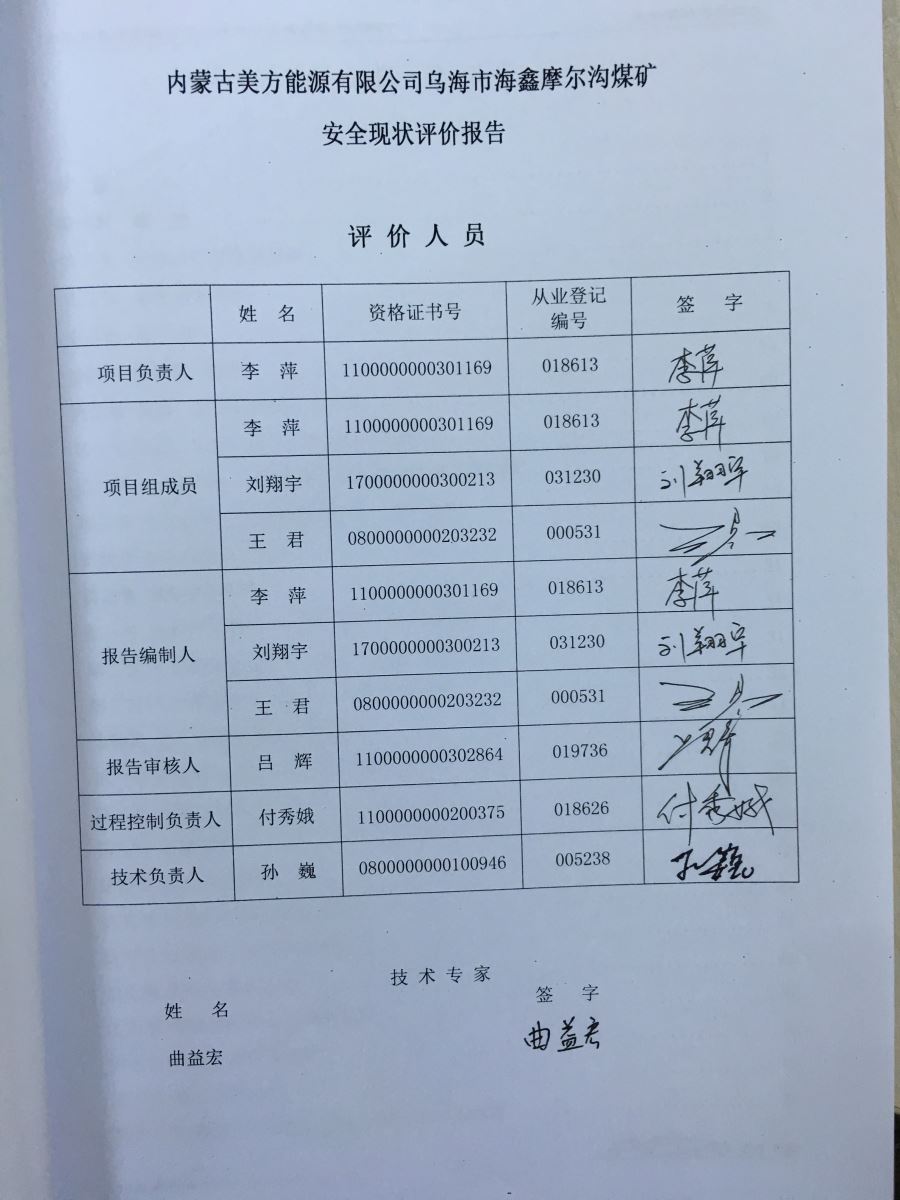 内蒙古美方能源有限公司乌海市海鑫摩尔沟煤矿
安全现状评价报告
评价人员
姓名 资格证书号 从业登记编号 签字
项目负责人 李萍 1100000000301169 018613 李萍
项目组成员 李萍 1100000000301169 018613 李萍
刘翔宇 1700000000300213 031230 刘翔宇
王君 0800000000203232 000531 王君
报告编制人 李萍 1100000000301169 018613 李萍
刘翔宇 1700000000300213 031230 刘翔宇
王君 0800000000203232 000531 王君
报告审核人 吕辉 1100000000302864 019736 吕辉
过程控制负责人 付秀娥 1100000000200375 018626 付秀娥
技术负责人 孙巍 0800000000100946 005238 孙巍
技术专家
姓名 签字
曲益宏 曲益宏